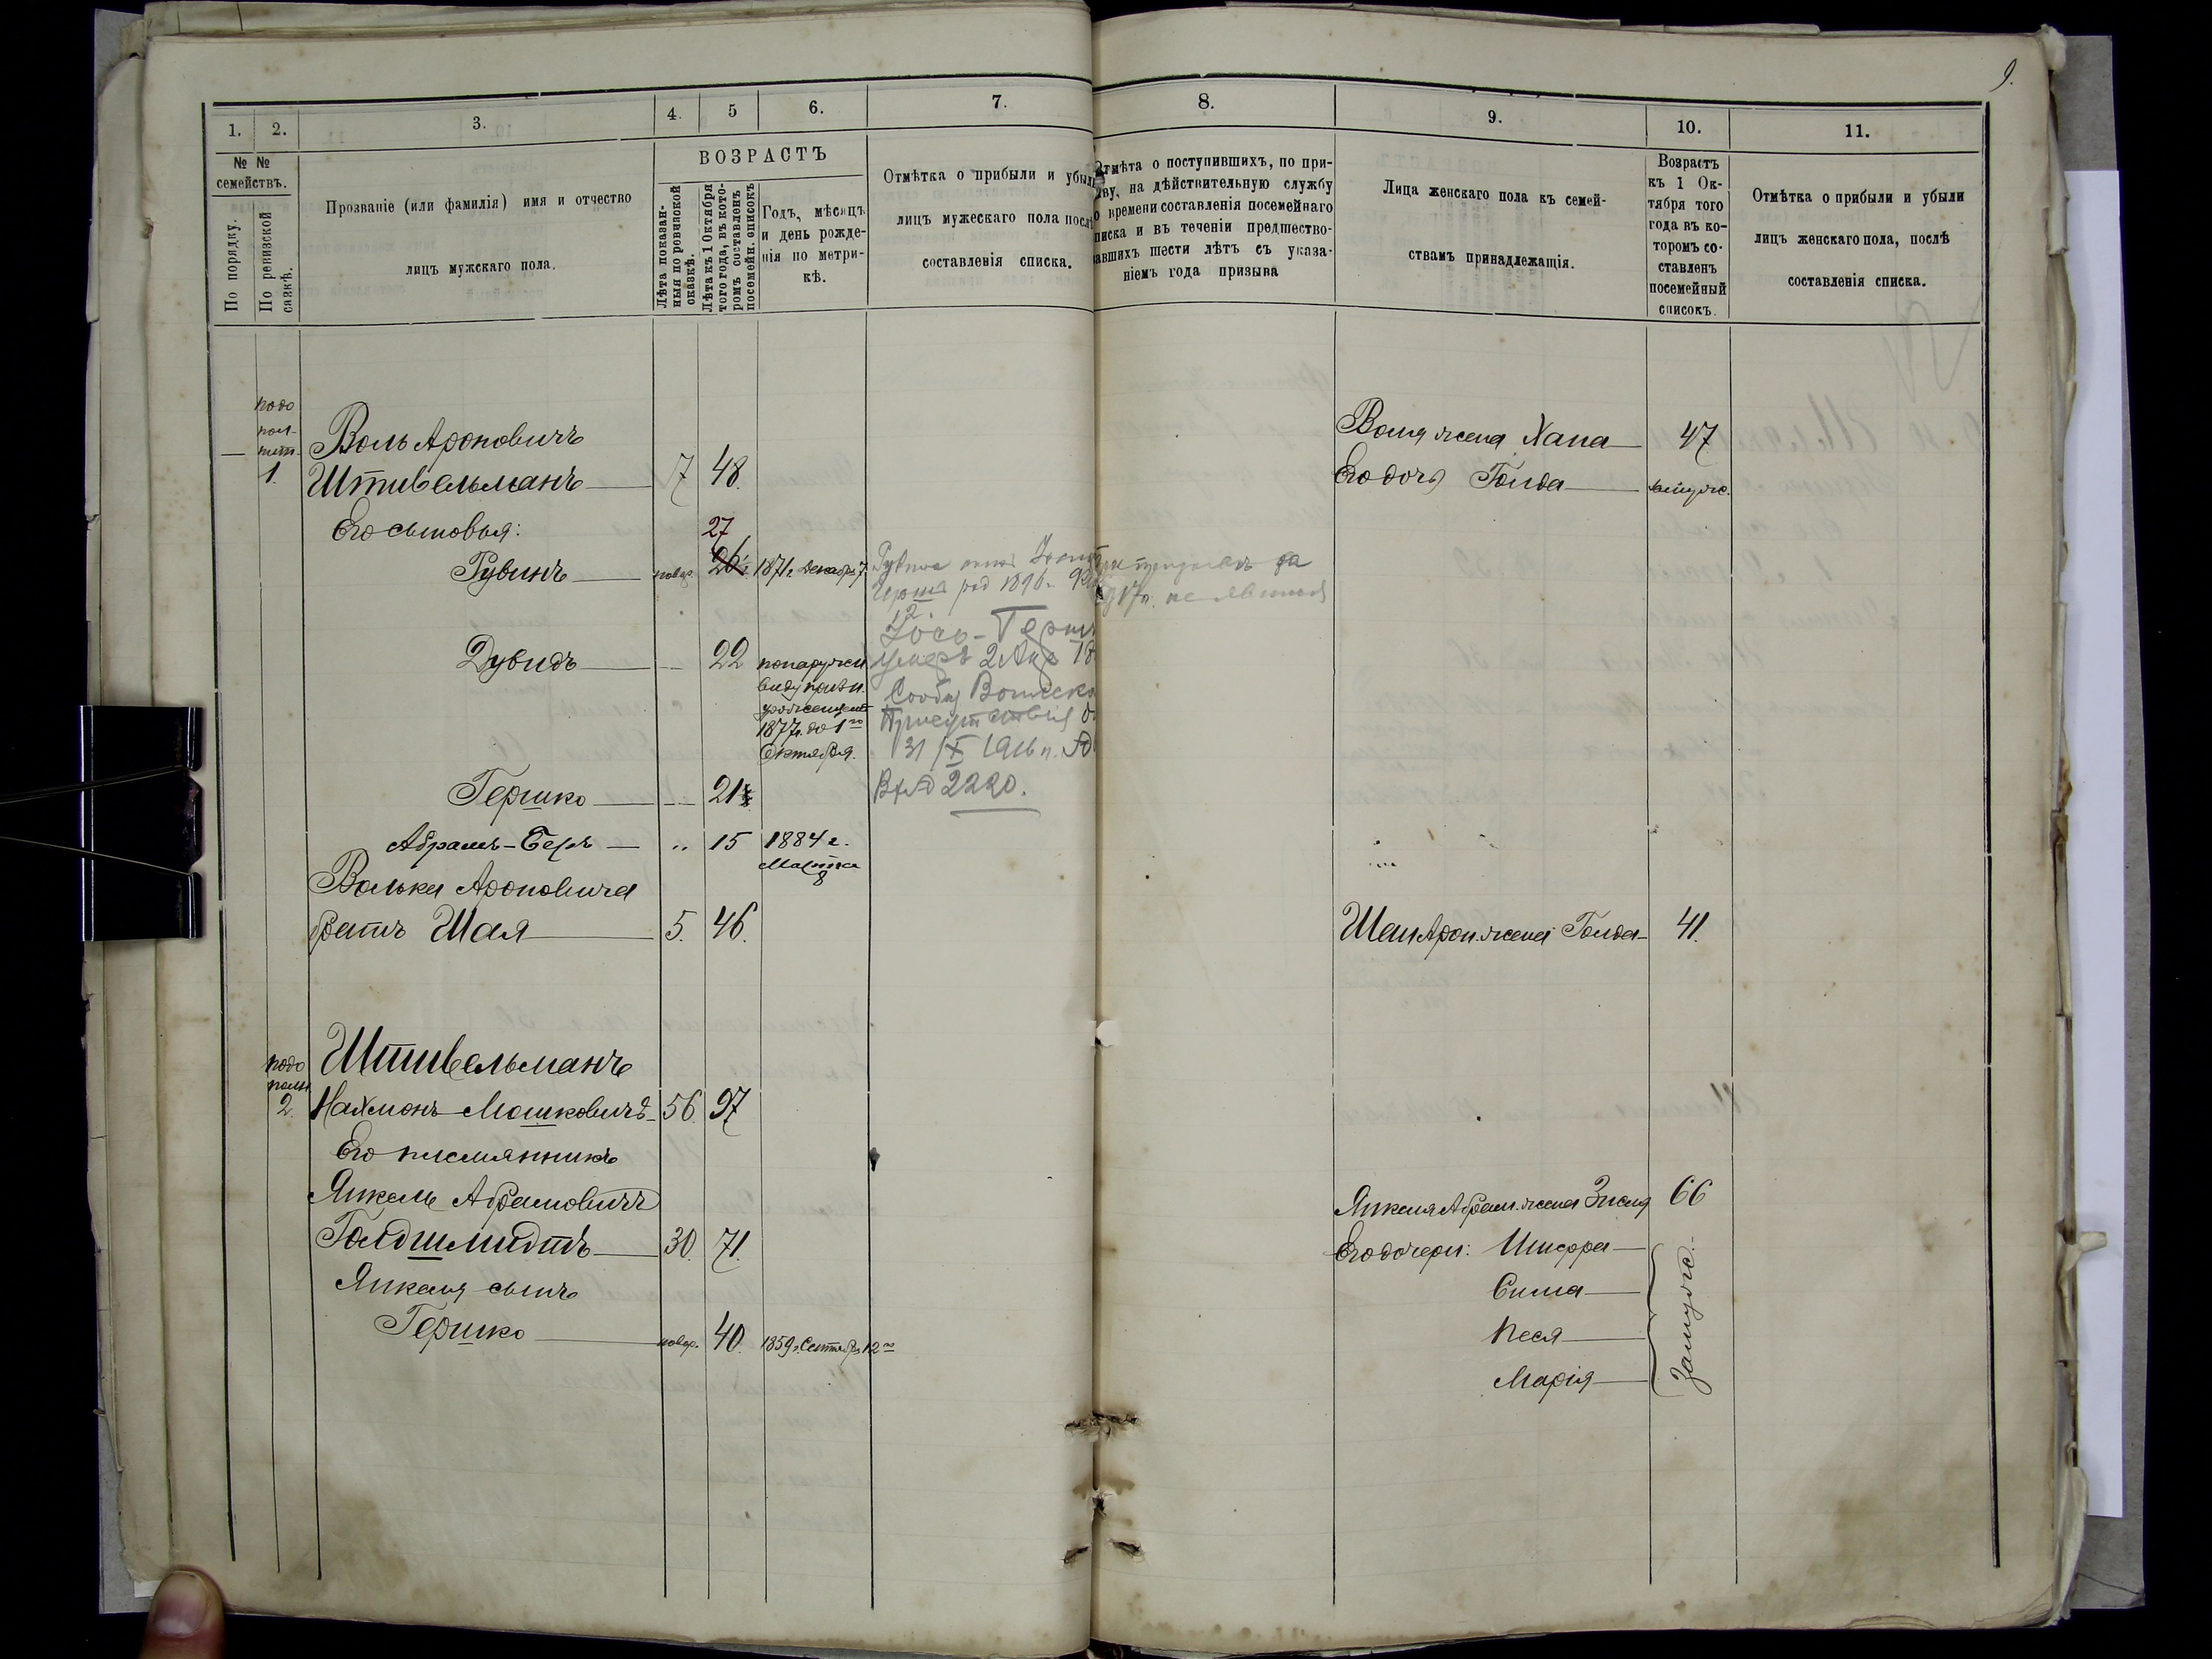 9.
1. 2. 3. 4. 5 6. 7. 8. 9. 10. 11.
№ №
семействъ.
По порядку.
По ревизской
сазкѣ.
Прозваніе (или фамилія) имя и отчество
лицъ мужскаго пола.
ВОЗРАСТЪ
Лѣта показан-
ныя по ревизской
сказкѣ.
Лѣта къ 1 Октября
того года, въ кото-
ромъ составленъ
посемейн. списокъ
Годъ, мѣсяцъ
и день рожде-
нія по метри-
кѣ.
Отмѣтка о прибыли и убыли
лицъ мужескаго пола послѣ
составленія списка.
Отмѣта о поступившихъ, по при-
зыву, на дѣйствительную службу
времени составленія посемейнаго
списка и въ теченіи предшество-
вавшихъ шести лѣтъ съ указа-
ніемъ года призыва
Лица женскаго пола къ семей-
ствамъ принадлежащія.
Возрастъ
къ 1 Ок-
тября того
года въ ко-
торомъ со-
ставленъ
посемейный
списокъ.
Отмѣтка о прибыли и убыли
лицъ женскаго пола, послѣ
составленія списка.
1.
Воль Ароновичъ
Штивельманъ 7 48.
Воля жена Хана 47
Его дочь Голда замуж.
Его сыновья: 27
Рувинъ новор. 26 1871 г. Декабр. 7.
Дувидъ — 22 по наружн.
виду призн.
уроженцемъ
1877 г. до 1го
Октября.
Іось-Герш
умеръ 2 Апр 18
Сообщ Воинско
Присутствія
31/X 1916 г.
Вх № 2220.
Гершко — 21
Абрамъ-Беръ — „ 15 1884 г.
Марта
8
Волька Ароновича
братъ Шая 5. 46.
Шаи Арон. жена Голда 41.
подо
полн
2.
Штивельманъ
Нахмонъ Мошковичъ 56. 97
Его племянникъ
Янкель Абрамовичъ
Голдшмидтъ 30. 71.
Янкеля Абрам. жена 66
Его дочери: Шифра
Сима
Песя
Марія
Замужс.
Янкеля сынъ
Гершко новор. 40. 1859 г. Сентябр. 12го